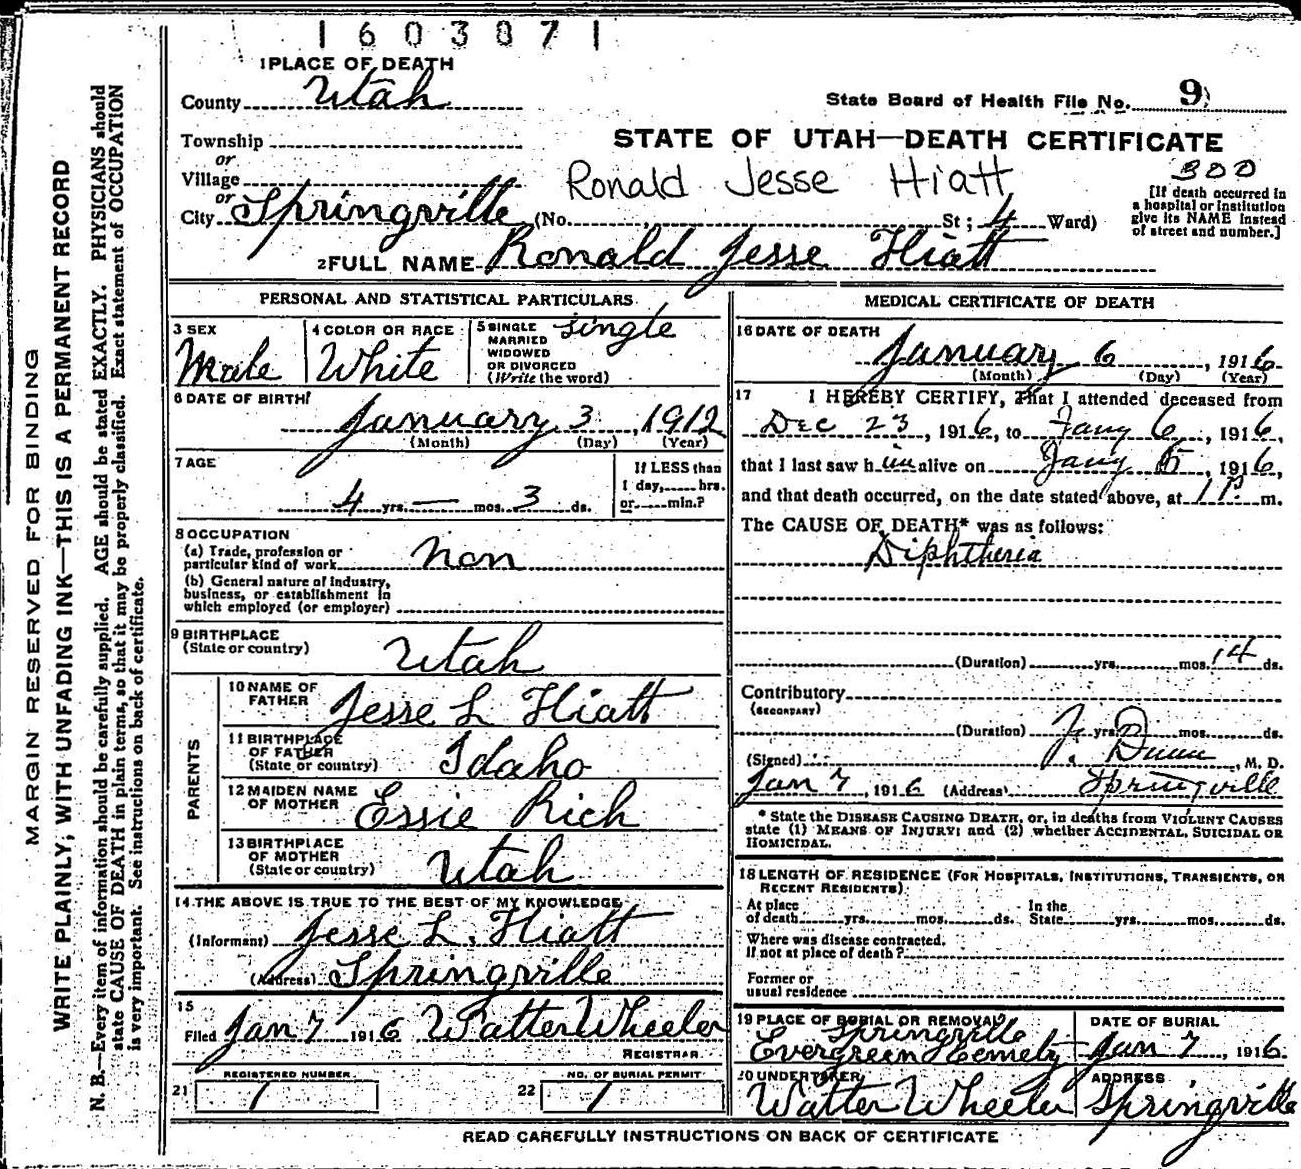 1603871
1 PLACE OF DEATH
County Utah
State Board of Health File No. 9
Township
or
Village
or
City Springville (No. St; 4 Ward)
STATE OF UTAH—DEATH CERTIFICATE
Ronald Jesse Hiatt
300
[If death occurred in
a hospital or institution
give its NAME instead
of street and number.]
2 FULL NAME Ronald Jesse Hiatt
PERSONAL AND STATISTICAL PARTICULARS
3 SEX
Male
4 COLOR OR RACE
White
5 SINGLE
MARRIED
WIDOWED
OR DIVORCED
(Write the word)
single
6 DATE OF BIRTH
January 3, 1912
(Month) (Day) (Year)
7 AGE
4 yrs. — mos. 3 ds.
If LESS than
1 day, hrs.
or min.?
8 OCCUPATION
(a) Trade, profession or
particular kind of work non
(b) General nature of industry,
business, or establishment in
which employed (or employer)
9 BIRTHPLACE
(State or country) Utah
PARENTS
10 NAME OF
FATHER Jesse L Hiatt
11 BIRTHPLACE
OF FATHER
(State or country) Idaho
12 MAIDEN NAME
OF MOTHER Essie Rich
13 BIRTHPLACE
OF MOTHER
(State or country) Utah
14 THE ABOVE IS TRUE TO THE BEST OF MY KNOWLEDGE
(Informant) Jesse L. Hiatt
(Address) Springville
15
Filed Jan 7 1916 Walter Wheeler
REGISTRAR
REGISTERED NUMBER.
21 1
NO. OF BURIAL PERMIT
22 1
MEDICAL CERTIFICATE OF DEATH
16 DATE OF DEATH
January 6, 1916
(Month) (Day) (Year)
17 I HEREBY CERTIFY, That I attended deceased from
Dec 23, 1916, to Jany 6, 1916,
that I last saw h im alive on Jany 6, 1916,
and that death occurred, on the date stated above, at 11 P. m.
The CAUSE OF DEATH* was as follows:
Diphtheria
(Duration) yrs. mos. 14 ds.
Contributory
(SECONDARY)
(Duration) yrs. mos. ds.
(Signed) F. Dunn, M. D.
Jan 7, 1916 (Address) Springville
* State the DISEASE CAUSING DEATH, or, in deaths from VIOLENT CAUSES
state (1) MEANS OF INJURY; and (2) whether ACCIDENTAL, SUICIDAL OR
HOMICIDAL.
18 LENGTH OF RESIDENCE (FOR HOSPITALS, INSTITUTIONS, TRANSIENTS, OR
RECENT RESIDENTS)
At place
of death yrs. mos. ds.
In the
State yrs. mos. ds.
Where was disease contracted,
If not at place of death?
Former or
usual residence
19 PLACE OF BURIAL OR REMOVAL
Springville
Evergreen Cemety
DATE OF BURIAL
Jan 7, 1916.
20 UNDERTAKER
Walter Wheeler
ADDRESS
Springville
READ CAREFULLY INSTRUCTIONS ON BACK OF CERTIFICATE
MARGIN RESERVED FOR BINDING
WRITE PLAINLY, WITH UNFADING INK—THIS IS A PERMANENT RECORD
N. B.—Every item of information should be carefully supplied. AGE should be stated EXACTLY. PHYSICIANS should
state CAUSE OF DEATH in plain terms, so that it may be properly classified. Exact statement of OCCUPATION
is very important. See instructions on back of certificate.